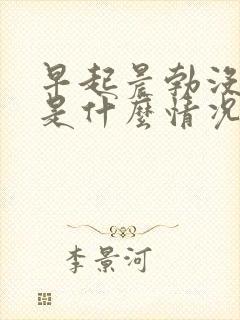 早起晨勃没
是什麼情况
李景河